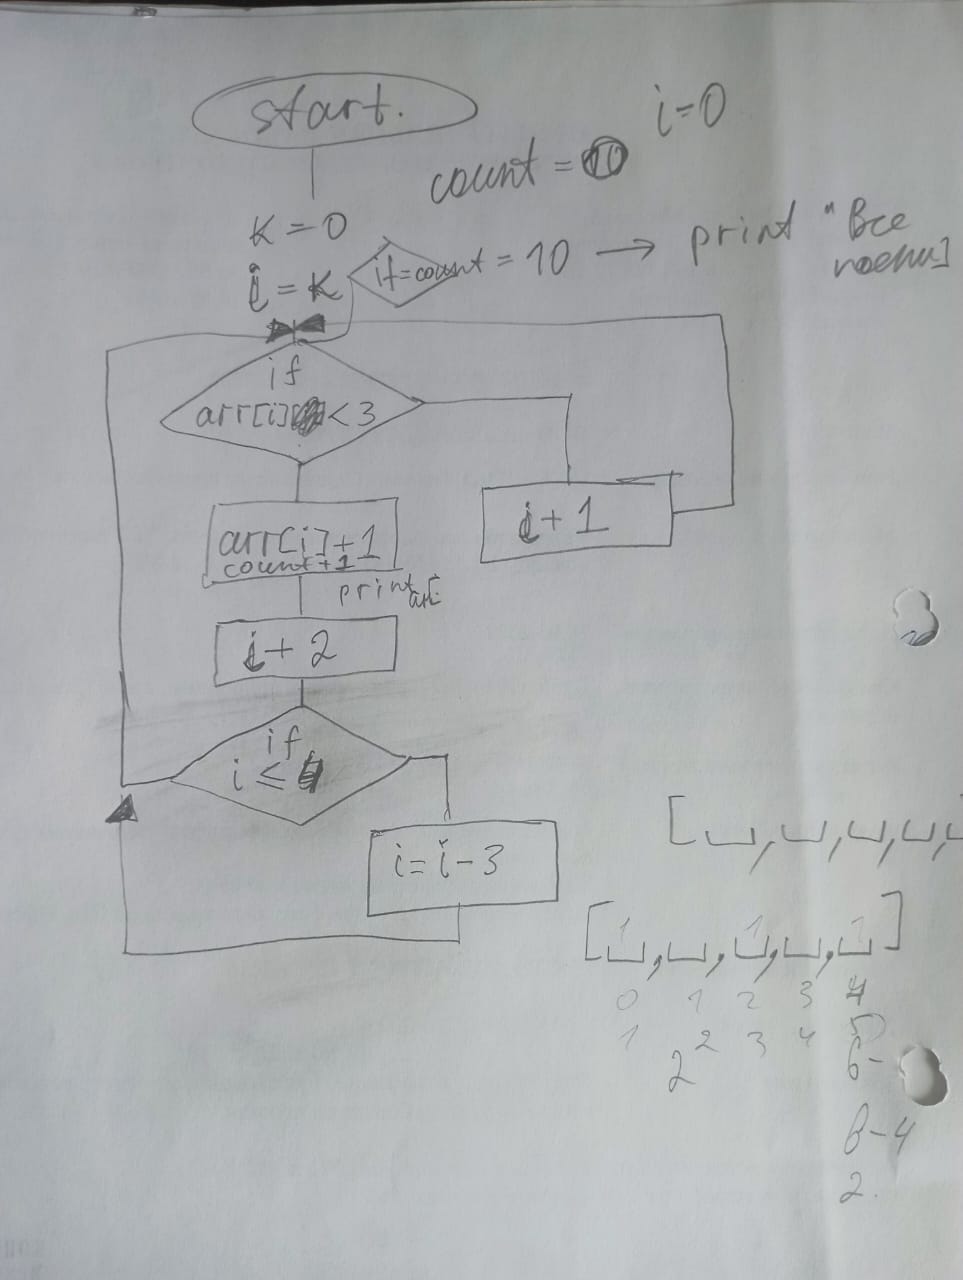 start.
i=0
count =
K = 0
i = K
if=count = 10 → print "Все
if
arr[i] < 3
arr[i]+1
count+1
print
i + 1
i + 2
if
i ≤
i = i - 3
[ , , , ,
[1, , 1, , 1]
0 1 2 3 4
1 2 3 4 5
2
6-
6-4
2.